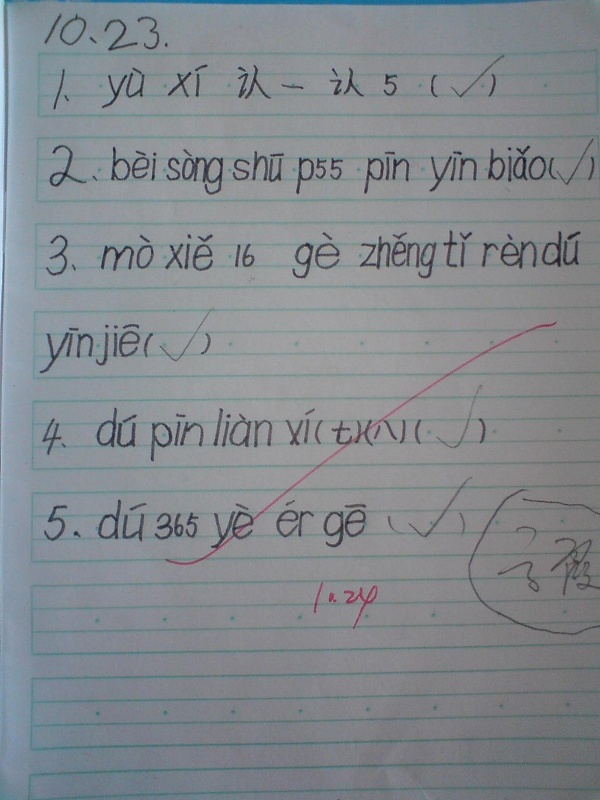 10.23.
1. yù xí 认一认 5 (✓)
2. bèi sòng shū p55 pīn yīn biǎo(✓)
3. mò xiě 16 gè zhěng tǐ rèn dú
yīn jiē(✓)
4. dú pīn liàn xí(七)(八)(✓)
5. dú 365 yè ér gē (✓)
10.24